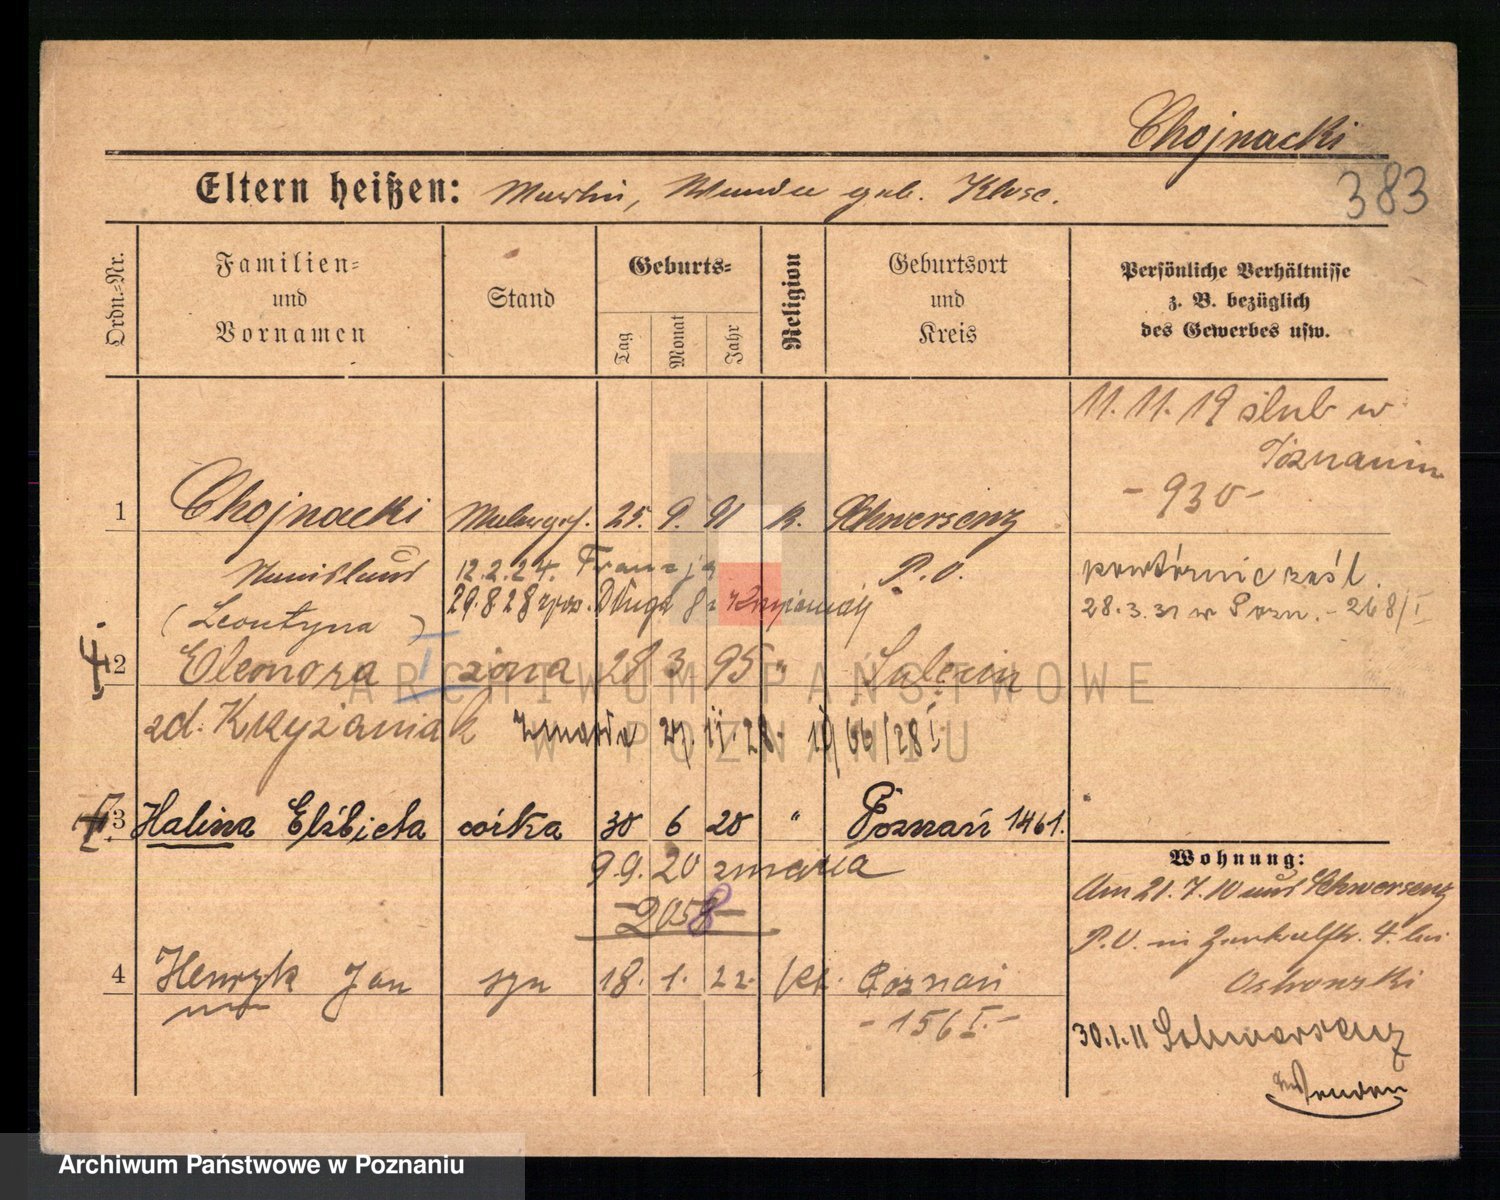 Chojnacki
383
Eltern heißen: Martin, Wanda geb. Klose.
Ordn.-Nr.
Familien- und Vornamen
Stand
Geburts-
Tag
Monat
Jahr
Religion
Geburtsort und Kreis
Persönliche Verhältnisse
z. B. bezüglich
des Gewerbes usw.
11. 11. 19 ślub w
Poznaniu
- 930 -
1 Chojnacki 25. 9. 91 k. Schwersenz
Stanislaus 12.2.24. Francja P. O.
29.8.28 Długa 8
powtórnie zaśl.
28.3.31 w Pozn. - 268/I
(Leontyna)
2 Eleonora I żona 28 3 95 "
zd. Krzyżaniak zmarła 27. 11. 28.
3 Halina Elżbieta córka 30 6 20 " Poznań 1461.
9.9.20 zmarła
- 2058 -
4 Henryk Jan syn 18. 1. 22. kt. Poznań
- 156 I. -
Wohnung:
Am 21.7.10 und Schwersenz
P.O. in 4. bei
30.1.11 Schwersenz
ARCHIWUM PAŃSTWOWE
W POZNANIU
Archiwum Państwowe w Poznaniu